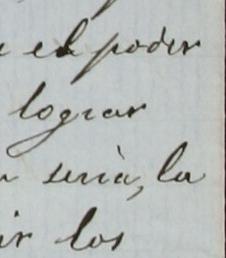 el poder
lograr
seria, la
ir los